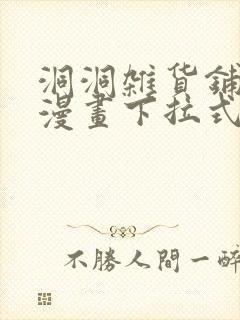 洞洞雜貨鋪
漫畫下拉式
不勝人間一醉